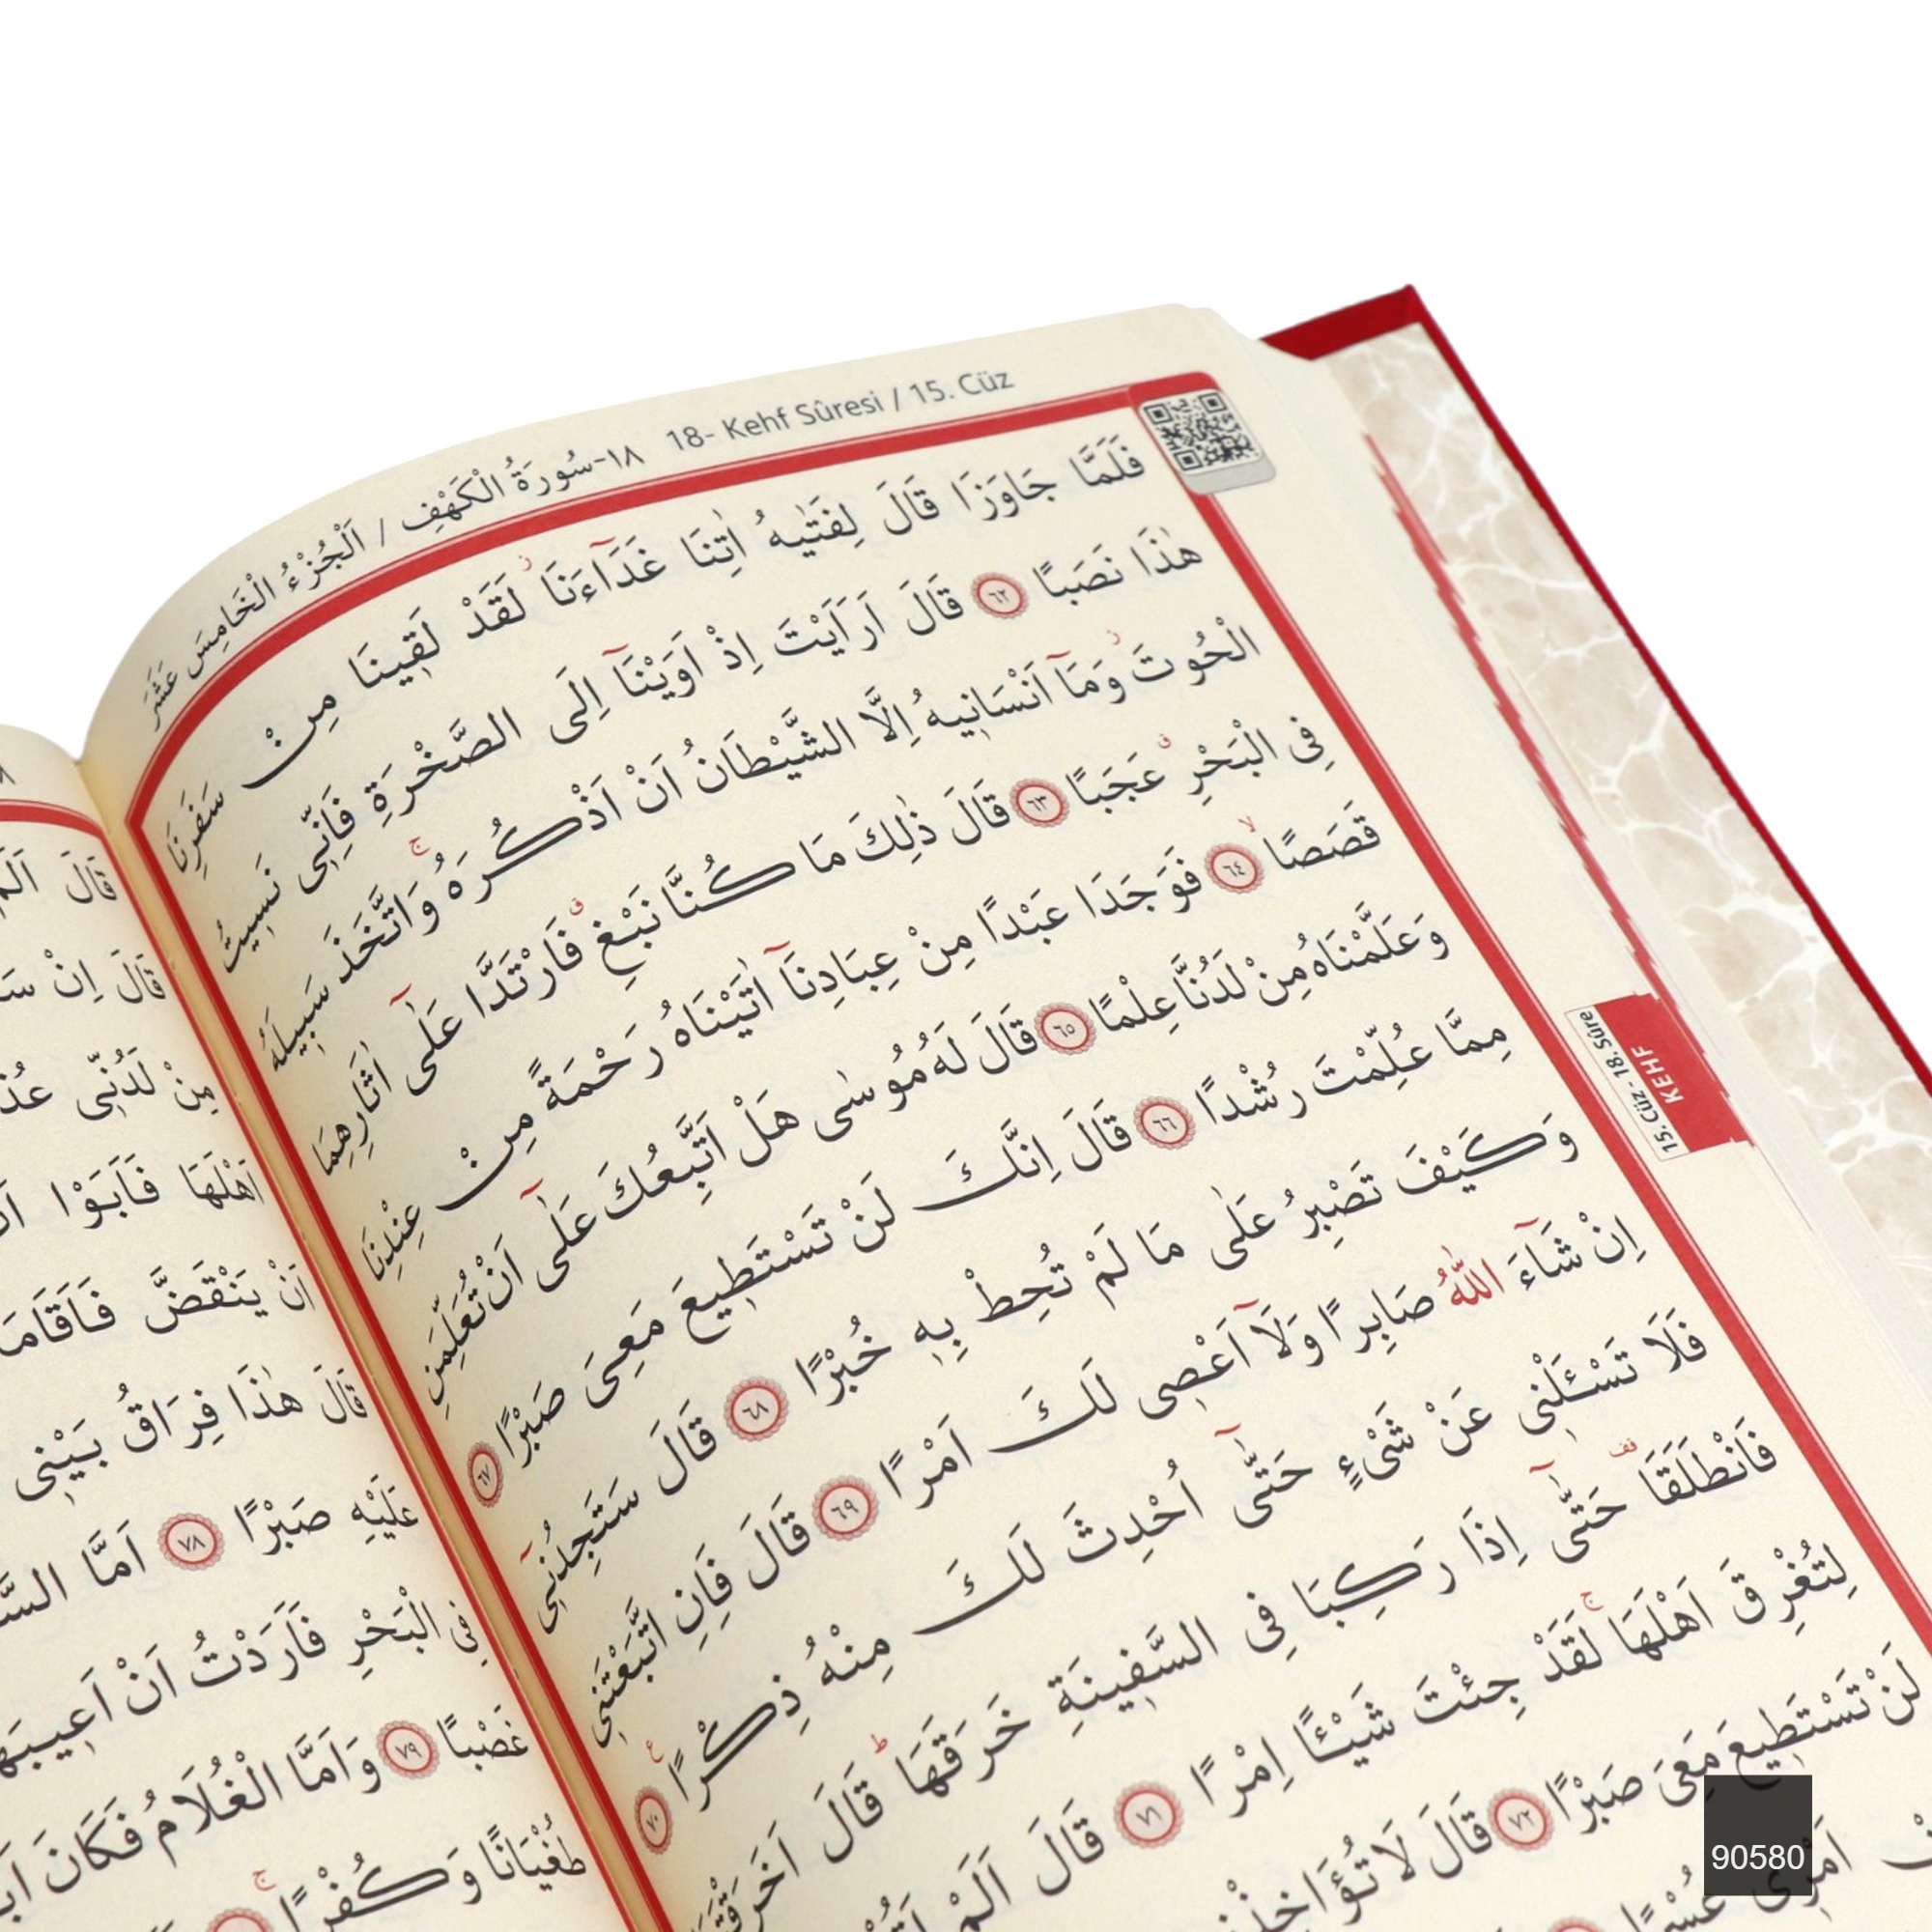 ١٨-سُورَةُ الْكَهْفِ / اَلْجُزْءُ الْخَامِسَ عَشَرَ 18- Kehf Sûresi / 15. Cüz
فَلَمَّا جَاوَزَا قَالَ لِفَتٰيهُ اٰتِنَا غَدَٓاءَنَاۘ لَقَدْ لَقٖينَا مِنْ سَفَرِنَا
هٰذَا نَصَبًا ٦٢ قَالَ اَرَاَيْتَ اِذْ اَوَيْنَٓا اِلَى الصَّخْرَةِ فَاِنّٖى نَسٖيتُ
الْحُوتَۘ وَمَٓا اَنْسَانٖيهُ اِلَّا الشَّيْطَانُ اَنْ اَذْكُرَهُۚ وَاتَّخَذَ سَبٖيلَهُ
فِى الْبَحْرِۗ عَجَبًا ٦٣ قَالَ ذٰلِكَ مَا كُنَّا نَبْغِۗ فَارْتَدَّا عَلٰٓى اٰثَارِهِمَا
قَصَصًاۙ ٦٤ فَوَجَدَا عَبْدًا مِنْ عِبَادِنَٓا اٰتَيْنَاهُ رَحْمَةً مِنْ عِنْدِنَا
وَعَلَّمْنَاهُ مِنْ لَدُنَّا عِلْمًا ٦٥ قَالَ لَهُ مُوسٰى هَلْ اَتَّبِعُكَ عَلٰٓى اَنْ تُعَلِّمَنِ
مِمَّا عُلِّمْتَ رُشْدًا ٦٦ قَالَ اِنَّكَ لَنْ تَسْتَطٖيعَ مَعِىَ صَبْرًا ٦٧
وَكَيْفَ تَصْبِرُ عَلٰى مَا لَمْ تُحِطْ بِهٖ خُبْرًا ٦٨ قَالَ سَتَجِدُنٖٓى
اِنْ شَٓاءَ اللّٰهُ صَابِرًا وَلَٓا اَعْصٖى لَكَ اَمْرًا ٦٩ قَالَ فَاِنِ اتَّبَعْتَنٖى
فَلَا تَسْـَٔلْنٖى عَنْ شَىْءٍ حَتّٰٓى اُحْدِثَ لَكَ مِنْهُ ذِكْرًا ٧٠
فَانْطَلَقَا حَتّٰٓى اِذَا رَكِبَا فِى السَّفٖينَةِ خَرَقَهَاۜ قَالَ اَخَرَقْتَهَا
لِتُغْرِقَ اَهْلَهَاۚ لَقَدْ جِئْتَ شَيْـًٔا اِمْرًا ٧١ قَالَ اَلَمْ
لَنْ تَسْتَطٖيعَ مَعِىَ صَبْرًا ٧٢ قَالَ لَا تُؤَاخِذْنٖى
اَمْرٖى عُسْرًا
15. Cüz - 18. Sûre
KEHF
قَالَ اَلَمْ
قَالَ اِنْ
مِنْ لَدُنّٖى
اَهْلَهَا فَاَبَوْا
اَنْ يَنْقَضَّ فَاَقَامَهُ
قَالَ هٰذَا فِرَاقُ بَيْنٖى
عَلَيْهِ صَبْرًا ٧٨ اَمَّا
فِى الْبَحْرِ فَاَرَدْتُ اَنْ اَعٖيبَهَا
غَصْبًا ٧٩ وَاَمَّا الْغُلَامُ فَكَانَ
طُغْيَانًا وَكُفْرًاۚ
90580